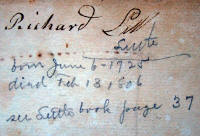 Richard
Suttle
born June 6 - 1725
died Feb 13, 1806
see Settle book page 37